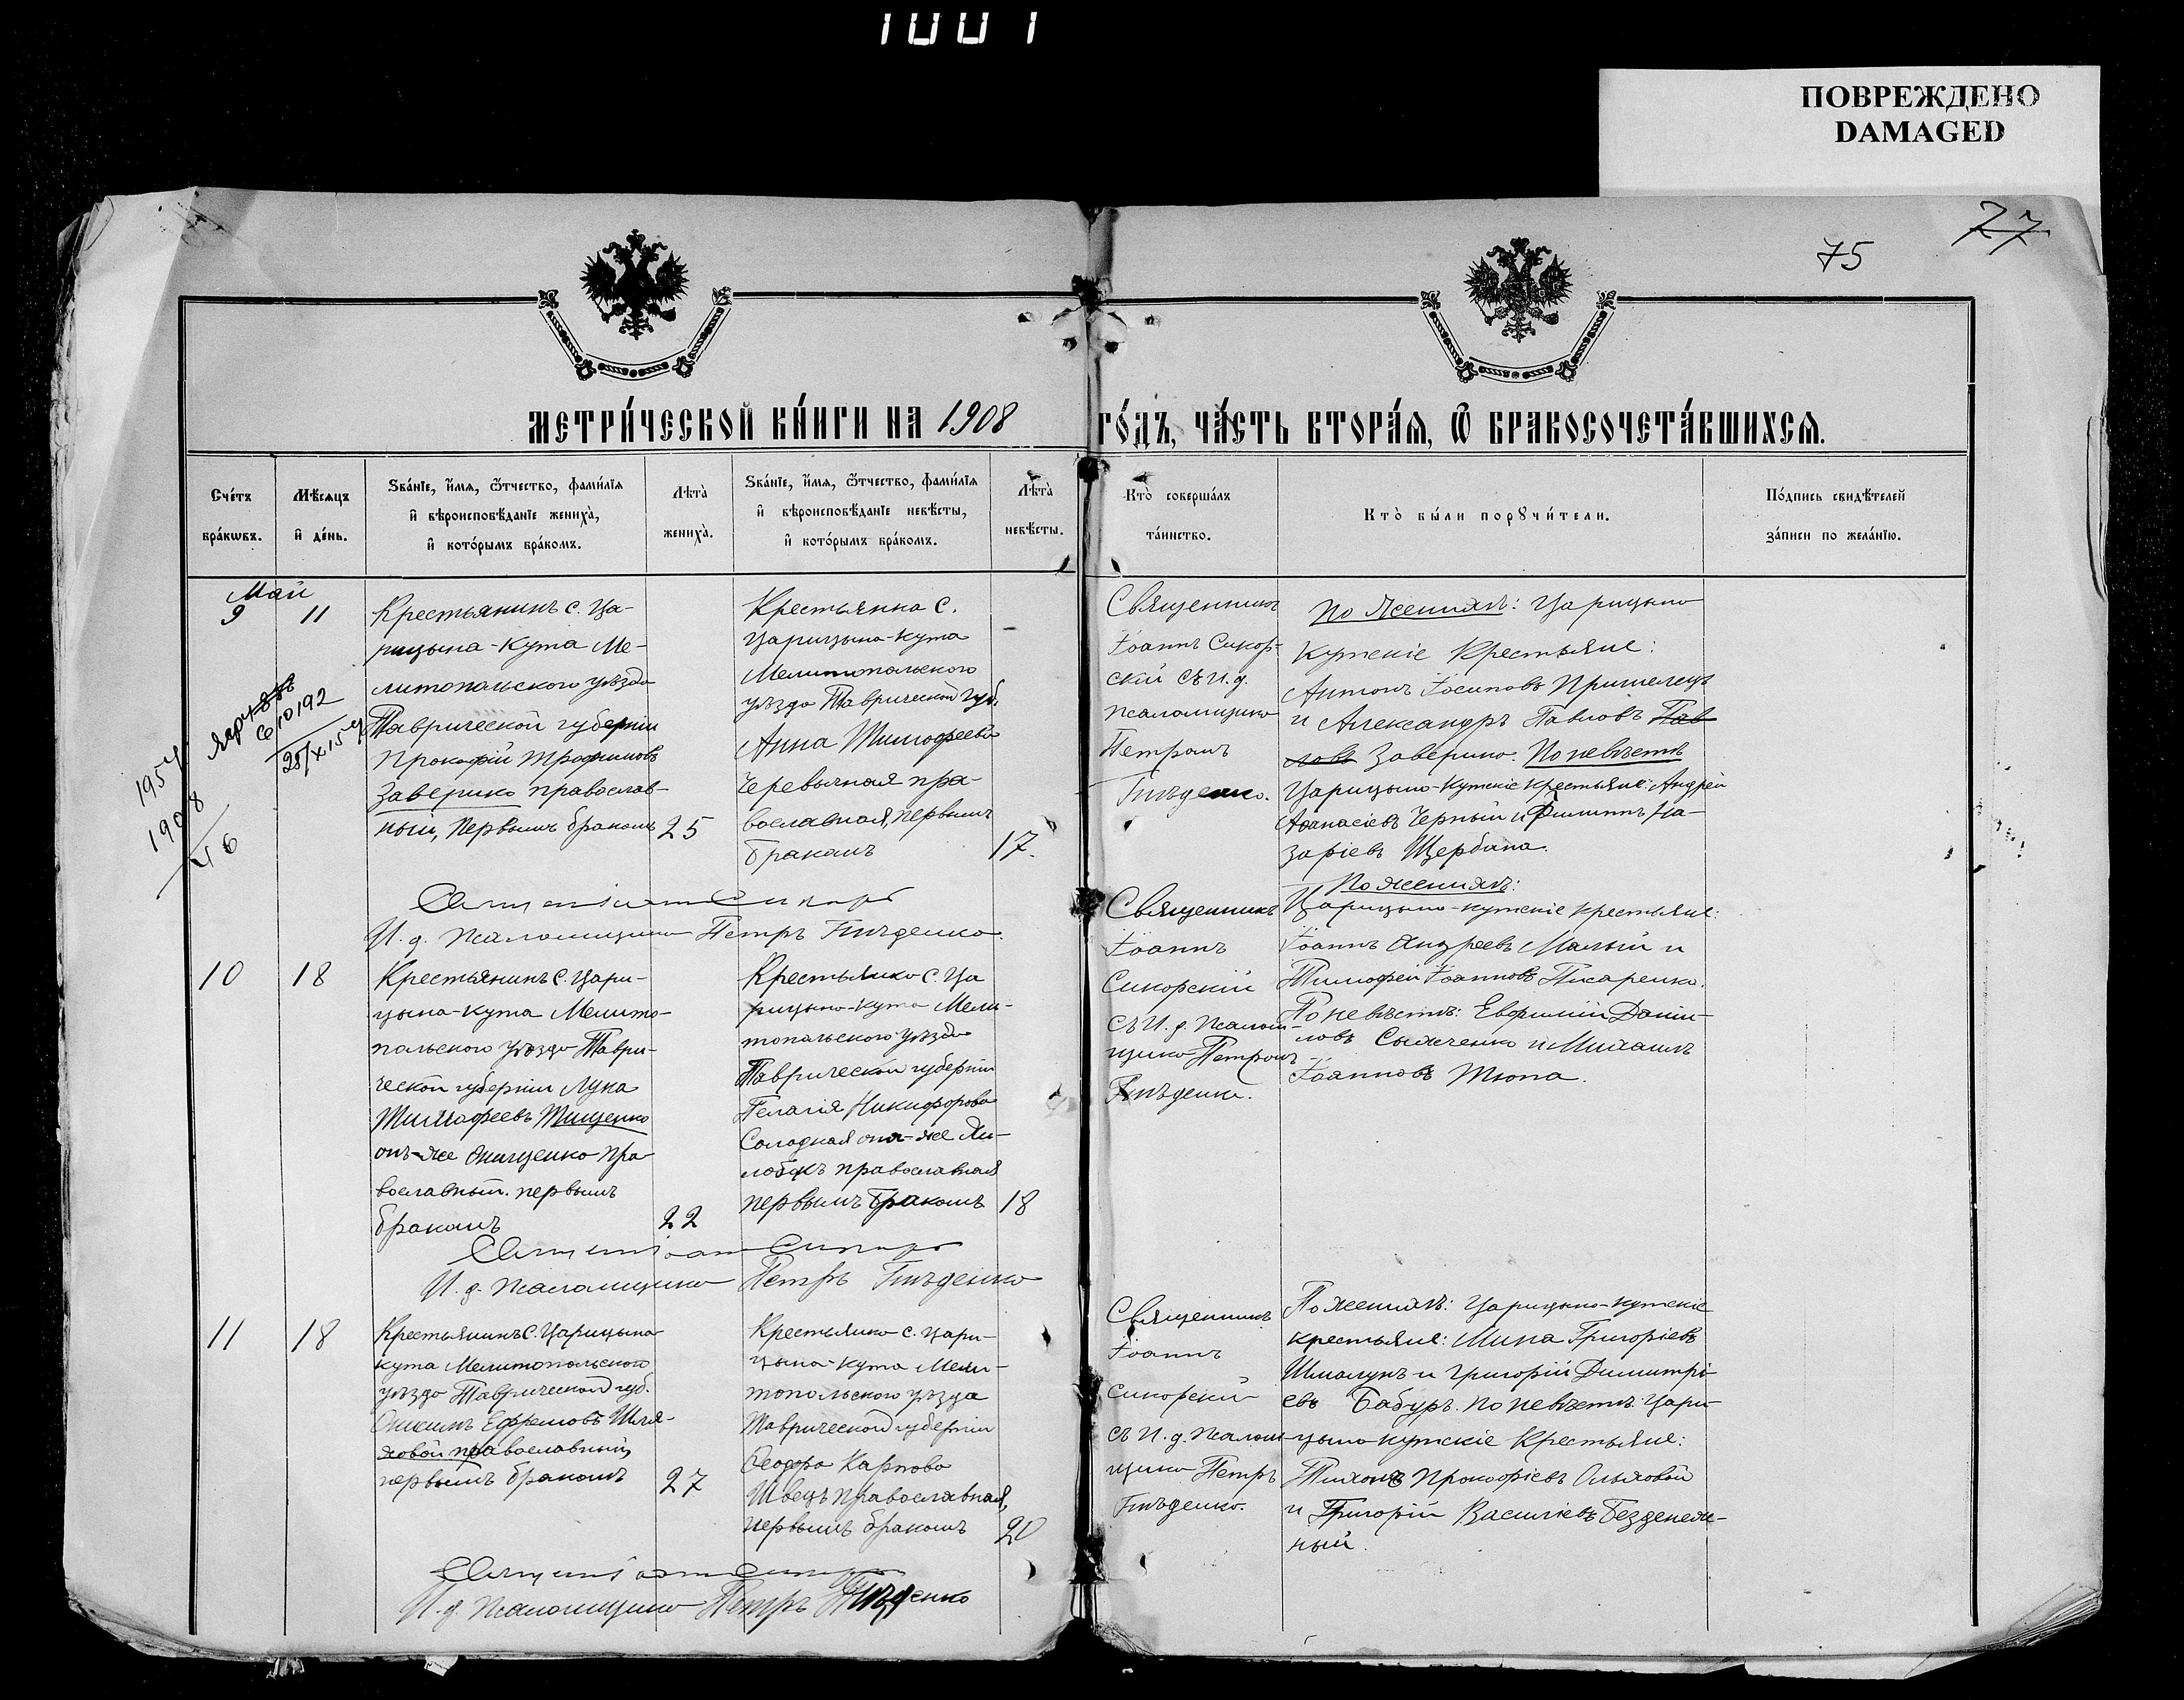 1001
ПОВРЕЖДЕНО
DAMAGED
77
75
МЕТРИ́ЧЕСКОЙ КНИ́ГИ НА 1908 ГО́ДЪ, ЧА́СТЬ ВТОРА́Я, Ѽ БРАКОСОЧЕТА́ВШИХСЯ.
Сче́тъ
бра́кѡвъ.
Мѣ́сяцъ
и҆ де́нь.
Ѕва́нїе, и҆́мя, ѻ҆́тчество, фами́лїя
и҆ вѣроисповѣ́данїе жениха̀,
и҆ кото́рымъ бра́комъ.
Лѣта̀
жениха̀.
Ѕва́нїе, и҆́мя, ѻ҆́тчество, фами́лїя
и҆ вѣроисповѣ́данїе невѣ́сты,
и҆ кото́рымъ бра́комъ.
Лѣта̀
невѣ́сты.
Кто̀ соверша́лъ
та́инство.
Кто̀ бы́ли порꙋчи́тели.
По́дпись свидѣ́телей
за́писи по жела́нїю.
Май
9
11
Крестьянинъ с. Ца-
рицына-Кута Ме-
литопольского уѣзда
Таврической губернiи
Прокофiй Трофимовъ
Заверико православ-
ный, первымъ бракомъ
25
Крестьянка с.
Царицына-Кута
Мелитопольского
уѣзда Таврической губ.
Анна Тимофеева
Черевычная пра-
вославная, первымъ
бракомъ
17.
Священникъ
Iоаннъ Сикор-
скiй съ И. д.
псаломщика
Петромъ
Гнѣденко.
По женихѣ: Царицыно
Кутскiе Крестьяне:
Антонъ Iосифовъ Пришелецъ
и Александръ Павловъ Пав
ловъ Заверико. По невѣстѣ
Царицыно-Кутскiе крестьяне: Андрей
Афанасiевъ Черный и Филиппъ На-
зарiевъ Щербина.
610192
28/X 15
1957
1908
46
И. д. псаломщика Петръ Гнѣденко.
10
18
Крестьянинъ с. Цари-
цына-Кута Мелито-
польского уѣзда Таври-
ческой губернiи Лука
Тимофеевъ Тищенко
онъ-же Онищенко пра-
вославный. первымъ
бракомъ
22
Крестьянка с. Ца
рицына-Кута Мели-
топольского уѣзда
Таврической губернiи
Пелагiя Никифорова
Солодкая она-же
православная
первымъ бракомъ
18
Священникъ
Iоаннъ
Сикорскiй
съ И. д. псалом-
щика Петромъ
Гнѣденко.
По женихѣ:
Царицыно-кутскiе крестьяне:
Iоаннъ Андреевъ Малый и
Тимофей Iоанновъ Писаренко.
По невѣстѣ: Евфимiй Данiи-
ловъ и Михаилъ
Iоанновъ Тюпа.
И. д. псаломщика Петръ Гнѣденко
11
18
Крестьянинъ с. Царицына
кута Мелитопольского
уѣзда Таврической губ.
Онисимъ Ефремовъ Шля-
ховой православный,
первымъ бракомъ
27
Крестьянка с. Цари-
цына-Кута Мели-
топольского уѣзда
Таврической губернiи
Феодора Карпова
Швецъ православная,
первымъ бракомъ
20
Священникъ
Iоаннъ
Сикорскiй
съ И. д. псалом-
щика Петръ
Гнѣденко.
По женихѣ: Царицыно-кутскiе
крестьяне: Мина Григорiевъ
Шмалунъ и Григорiй Димитрi-
евъ Бабуръ. По невѣстѣ: Цари-
цыно-кутскiе Крестьяне:
Тихонъ Прокофiевъ Ольховой
и Григорiй Василiевъ Безденеж-
ный.
И. д. псаломщика Петръ Гнѣденко